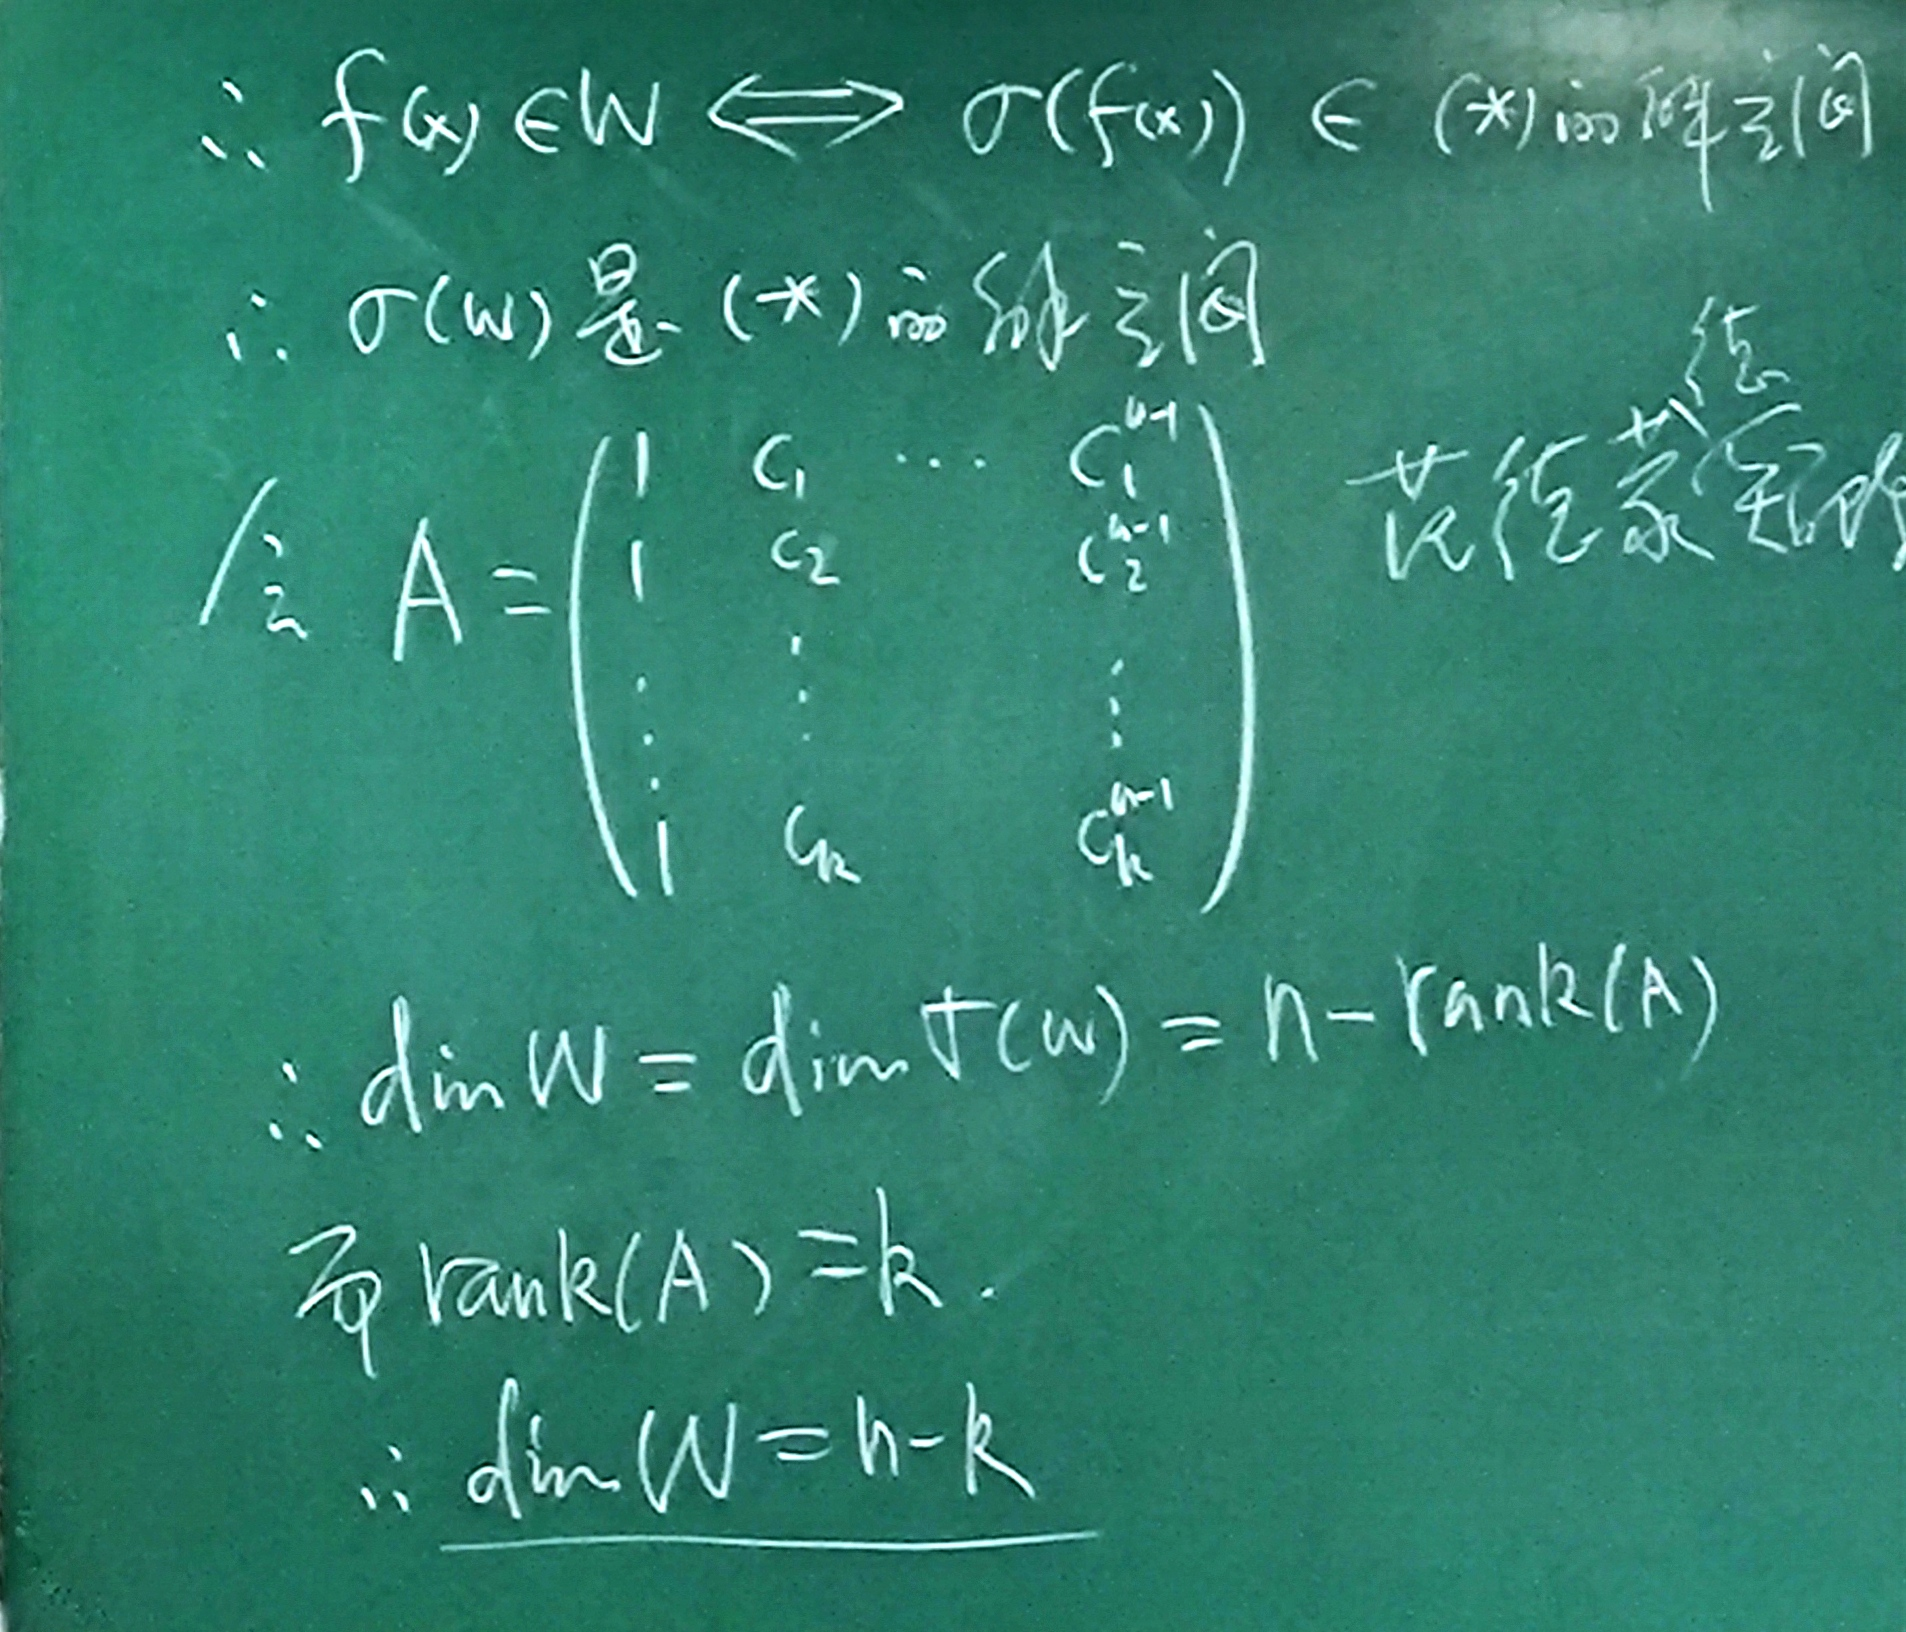 ∴ f(x) ∈ W ⟺ σ(f(x)) ∈ (*) 的解空间
∴ σ(W) 是 (*) 的解空间
令 A = ( 1 c₁ ⋯ c₁ⁿ⁻¹
1 c₂ c₂ⁿ⁻¹
⋮ ⋮ ⋮
1 cₖ cₖⁿ⁻¹ )
∴ dim W = dim σ(W) = n - rank(A)
而 rank(A) = k.
∴ dim W = n - k